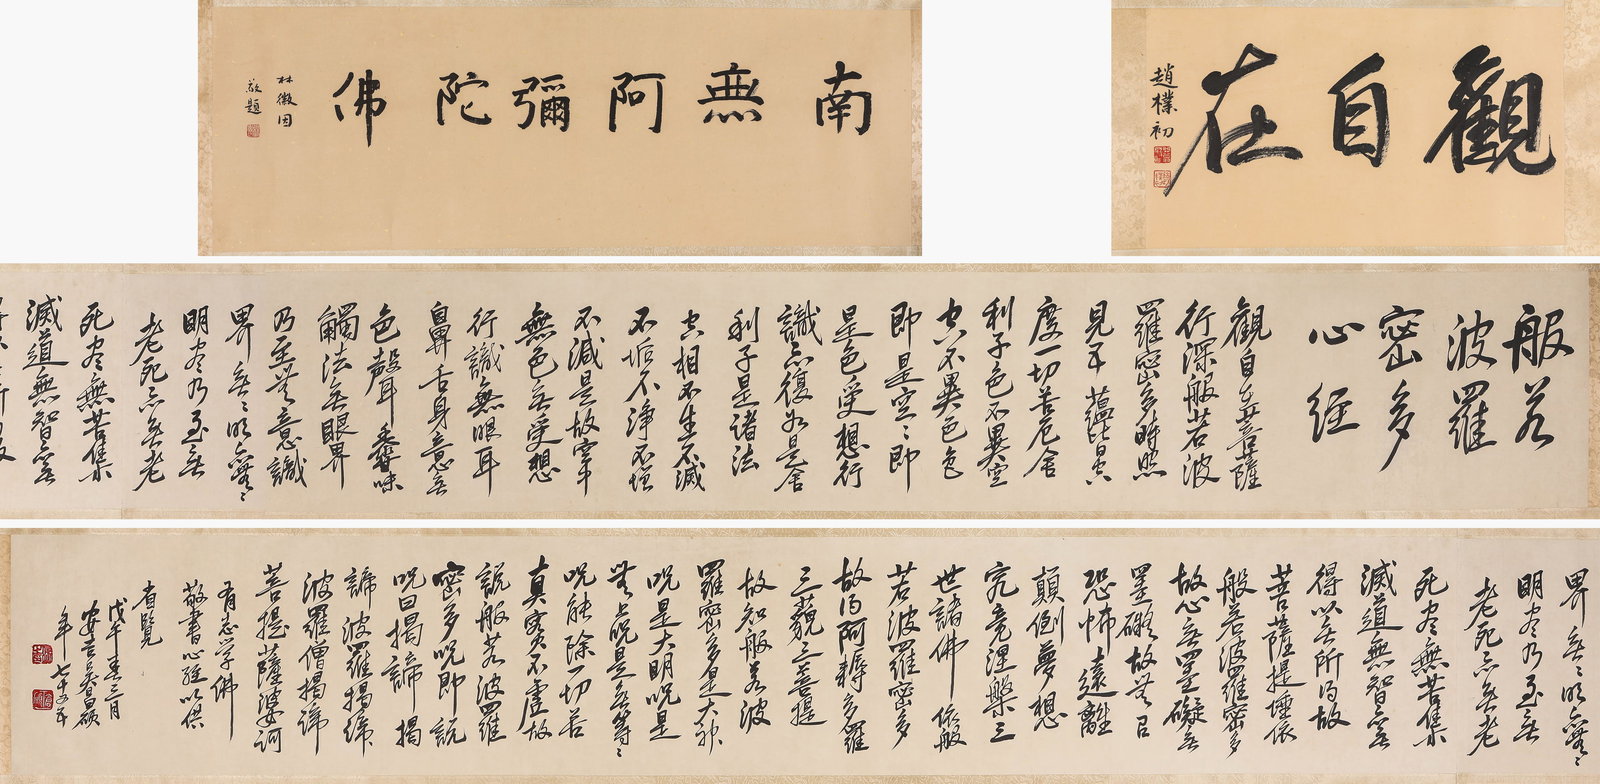 觀自在
趙樸初
南無阿彌陀佛
林徽因
敬題
般若
波羅
密多
心经
觀自在菩薩
行深般若波
羅密多時照
見五蘊皆空
度一切苦厄舍
利子色不異空
空不異色色
即是空〻即
是色受想行
識亦復如是舍
利子是諸法
空相不生不滅
不垢不淨不增
不減是故空中
無色無受想
行識無眼耳
鼻舌身意無
色聲香味
觸法無眼界
乃至無意識
界無〻明亦無〻
明盡乃至無
老死亦無老
死盡無苦集
滅道無智亦無
界無〻明亦無〻
明盡乃至無
老死亦無老
死盡無苦集
滅道無智亦無
得以無所得故
菩薩提埵依
般若波羅密多
故心無罣礙無
罣礙故無有
恐怖遠離
顛倒夢想
究竟涅槃三
世諸佛依般
若波羅密多
故得阿耨多羅
三藐三菩提
故知般若波
羅密多是大神
咒是大明咒是
無上咒是無等〻
咒能除一切苦
真實不虛故
說般若波羅
密多咒即說
咒曰揭諦揭
諦波羅揭諦
波羅僧揭諦
菩提薩婆訶
有志學佛
敬書心經以供
者覽
戊午春三月
安吉吳昌碩
年七十五